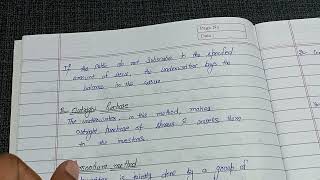 Page No.
Date:
If the public do not subscribe to the specified
amount of issue, the underwriter buys the
balance in the issue
2- Outright Purchase
The underwriter, in this method, makes
outright purchase of shares & resells them
to the investors
method
is jointly done by a group of